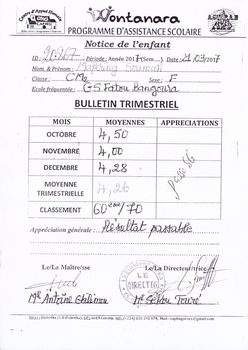 Wontanara
PROGRAMME D'ASSISTANCE SCOLAIRE
Notice de l'enfant
ID: 20807 Période: Année 2017 Date: 21/03/2017
Nom & Prénom: Soumah
Classe: CM2 Sexe: F
Ecole fréquentée: GS Fatou Bangoura
BULLETIN TRIMESTRIEL
MOIS MOYENNES APPRECIATIONS
OCTOBRE 4,50
NOVEMBRE 4,00
DECEMBRE 4,28
MOYENNE TRIMESTRIELLE 4,26
CLASSEMENT 60ème/70
Appréciation générale: Résultat passable
Le/La Maître/sse Le/La Directeur/rice
Mr Antoine Mr Sékou Touré